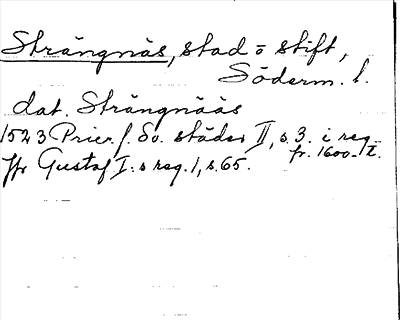 Strängnäs, stad o stift,
Söderm. l.
dat. Strängnääs
1523 Prier f. Sv. städer II, s. 3. i reg.
fr. 1600-t.
Jfr Gustaf I:s reg. 1, s. 65.